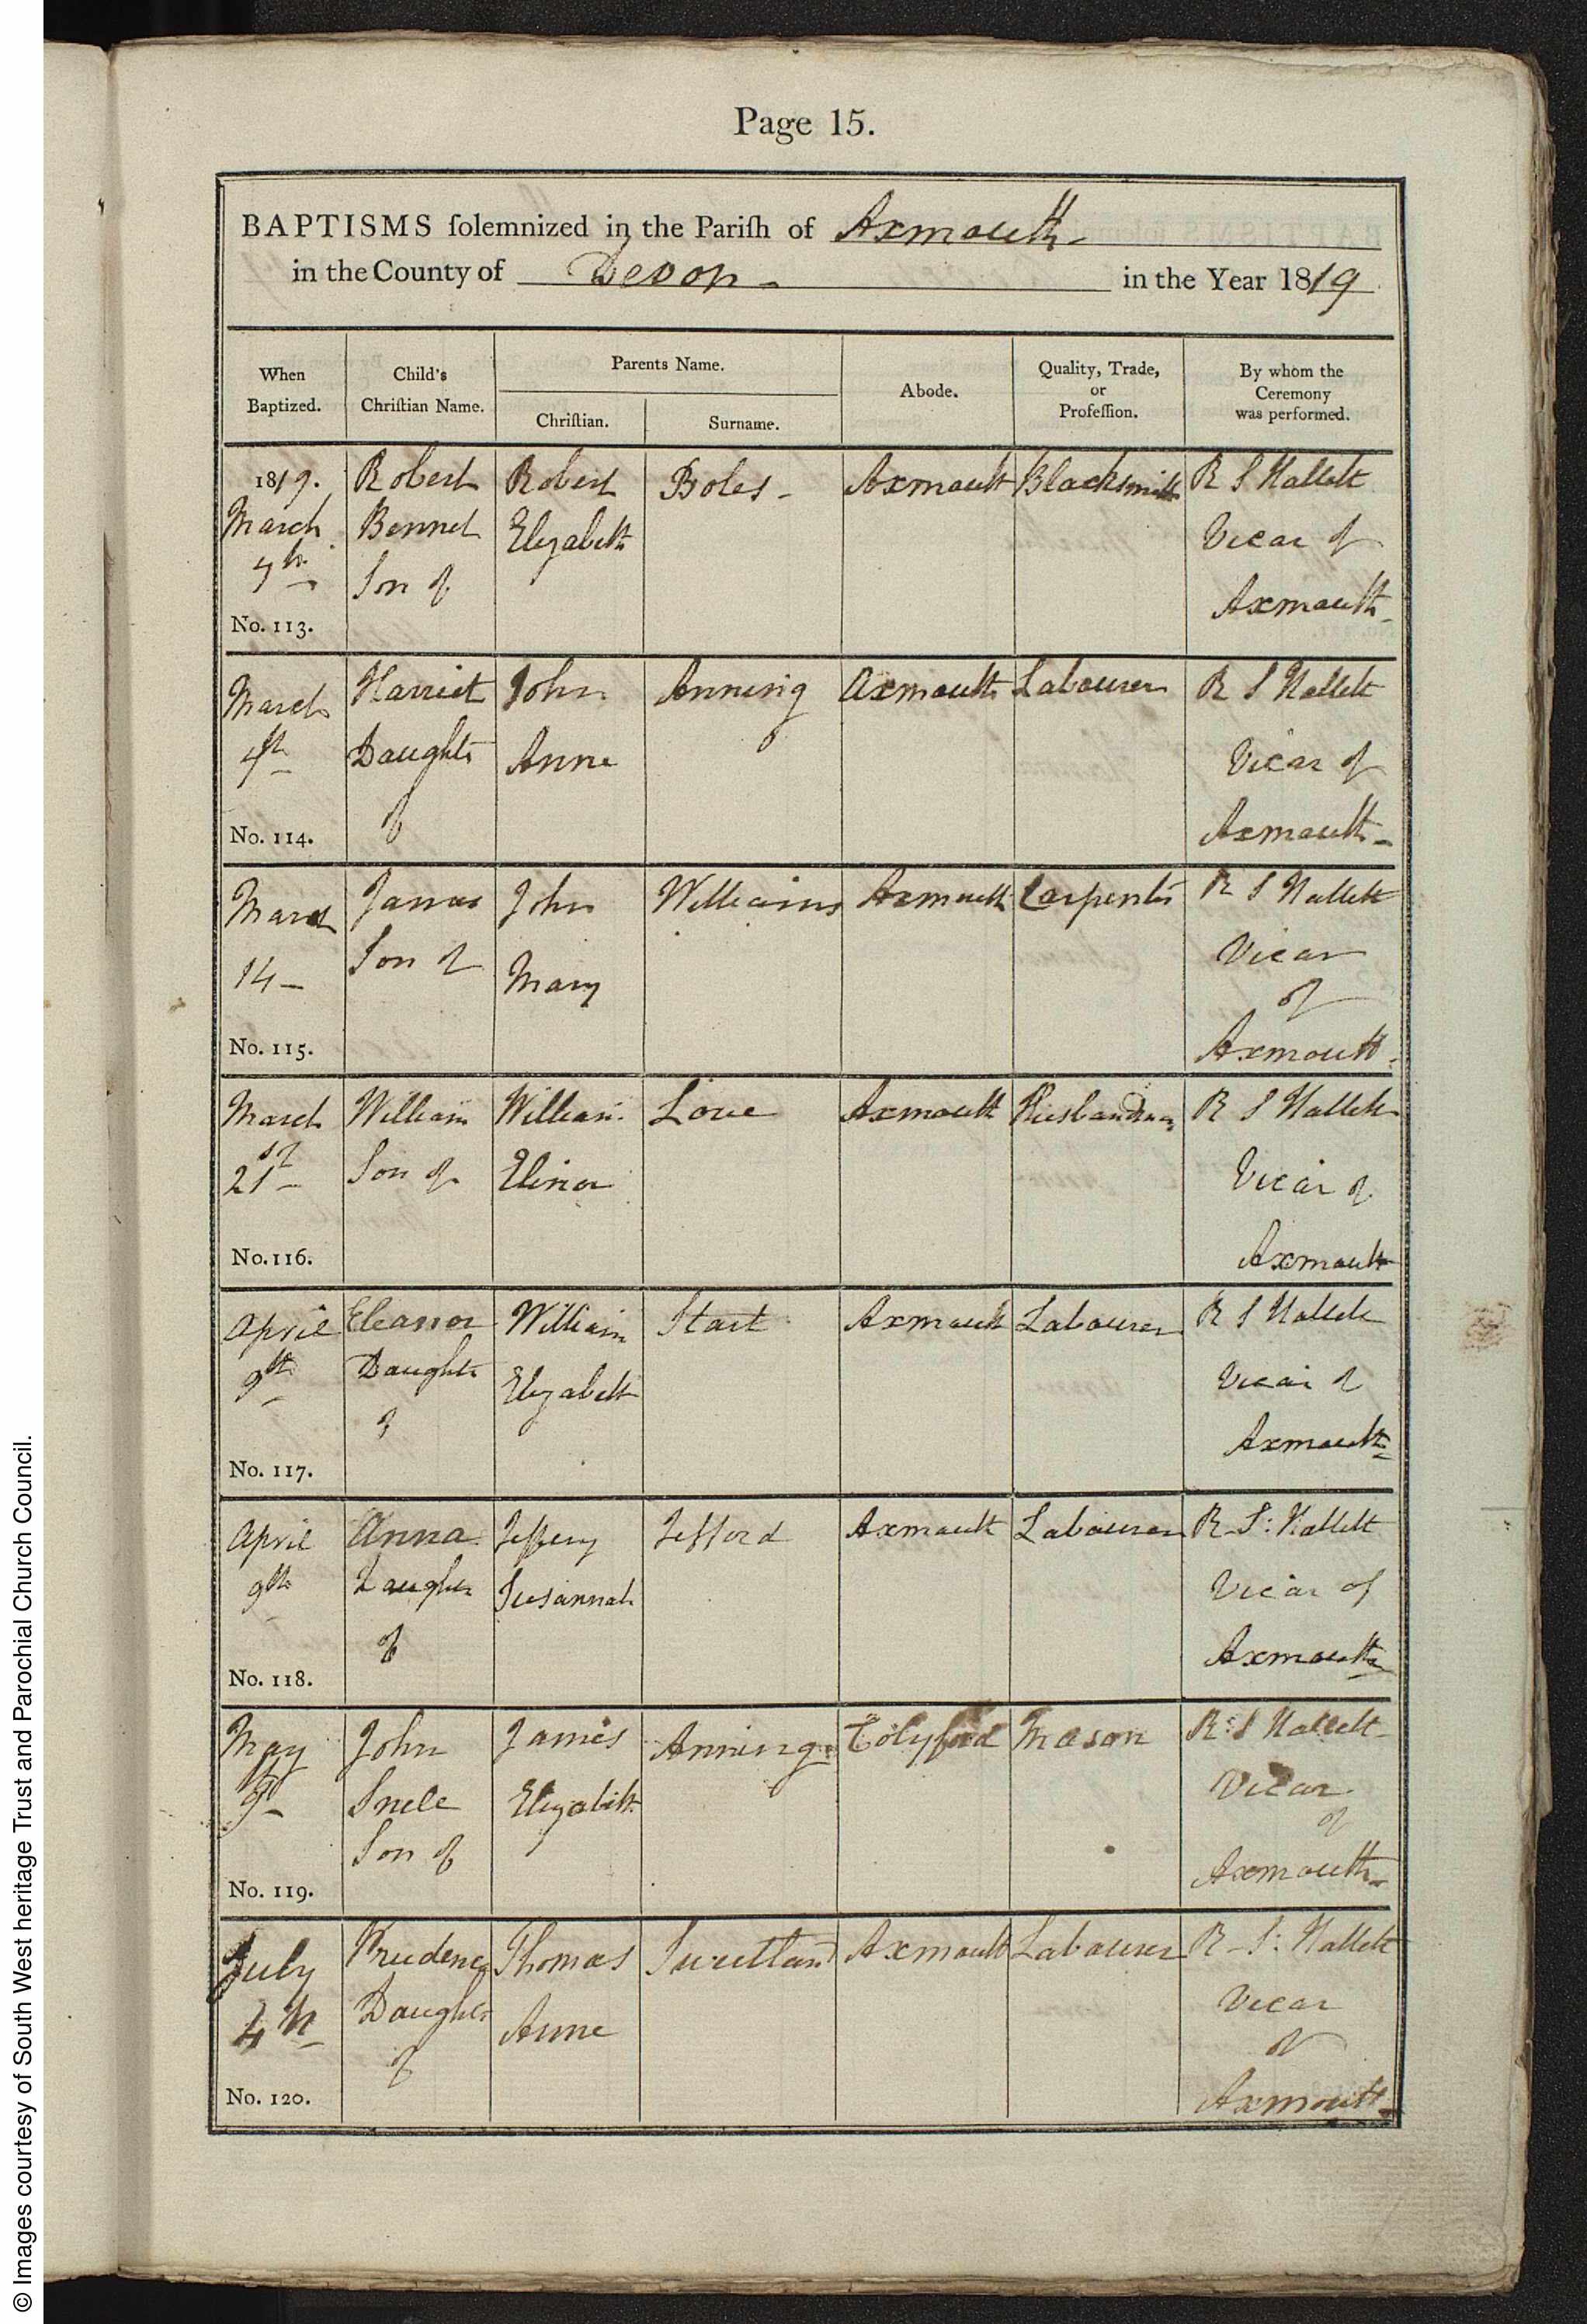 Page 15.
BAPTISMS ſolemnized in the Pariſh of Axmouth
in the County of Devon in the Year 1819
When Baptized.
Child's Chriſtian Name.
Parents Name.
Chriſtian.
Surname.
Abode.
Quality, Trade, or Profeſſion.
By whom the Ceremony was performed.
1819. Robert Robert Boles Axmouth Blacksmith R S Hallett
March Bennet Elizabeth Vicar of
7th Son of Axmouth
No. 113.
March Harriet John Anning Axmouth Labourer R S Hallett
Daughter Anne Vicar of
of Axmouth
No. 114.
March James John Williams Axmouth Carpenter R S Hallett
14 Son of Mary Vicar
of
No. 115. Axmouth
March William William Love Axmouth Husbandman R S Hallett
21st Son of Elinor Vicar of
No. 116. Axmouth
April Eleanor William Start Axmouth Labourer R S Hallett
9th Daughter Elizabeth Vicar of
of Axmouth
No. 117.
April Anna Jeffery Jefford Axmouth Labourer R. S: Hallett
9th Daughter Susannah Vicar of
of Axmouth
No. 118.
May John James Anning Colyford Mason R: S Hallett
9th Snele Elizabeth Vicar
Son of of
No. 119. Axmouth
July Prudence Thomas Sweetland Axmouth Labourer R. S: Hallett
4th Daughter Anne Vicar
of of
No. 120. Axmouth
© Images courtesy of South West heritage Trust and Parochial Church Council.